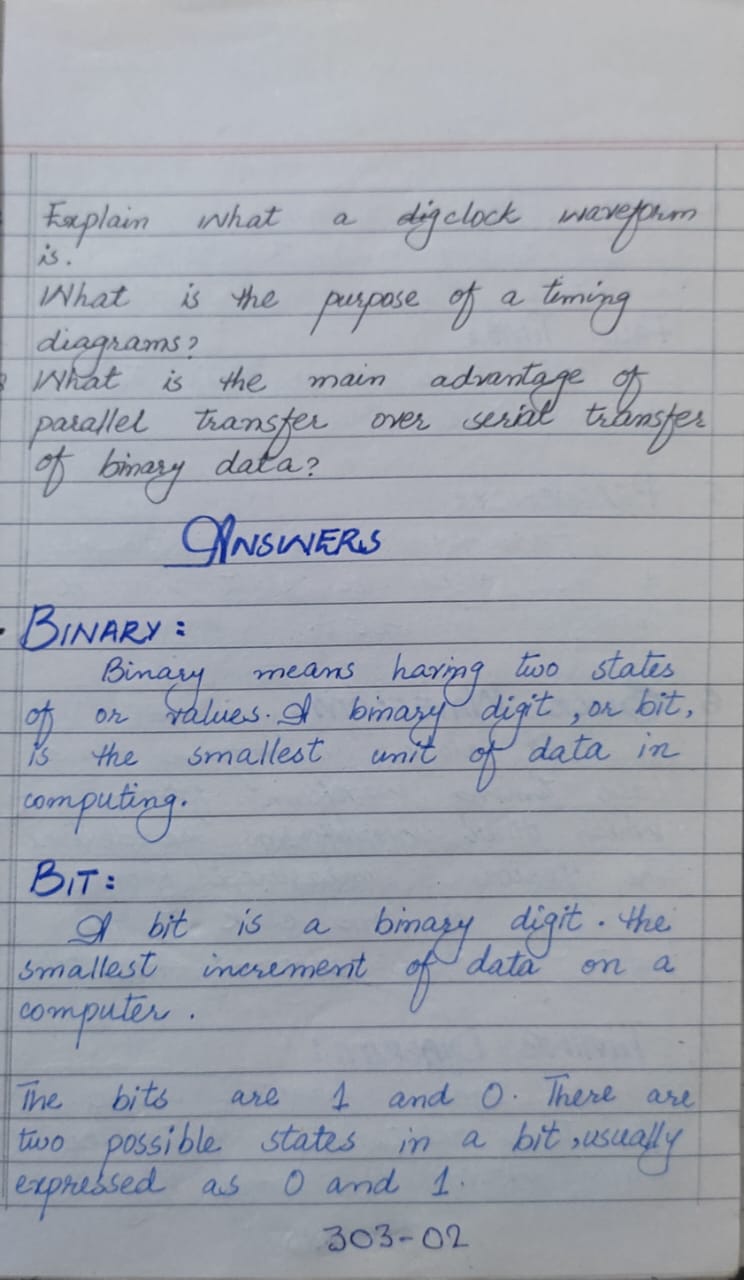 Explain what a digclock waveform
is.
What is the purpose of a timing
diagrams?
What is the main advantage of
parallel transfer over serial transfer
of binary data?
ANSWERS
BINARY:
Binary means having two states
of or values. A binary digit, or bit,
is the smallest unit of data in
computing.
BIT:
A bit is a binary digit. the
smallest increment of data on a
computer.
The bits are 1 and 0. There are
two possible states in a bit, usually
expressed as 0 and 1.
303-02